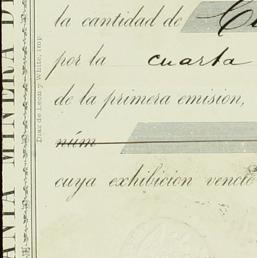 la cantidad de
por la cuarta
de la primera emision,
núm
cuya exhibicion venció
Diaz de Leon y White, imp
MINERA